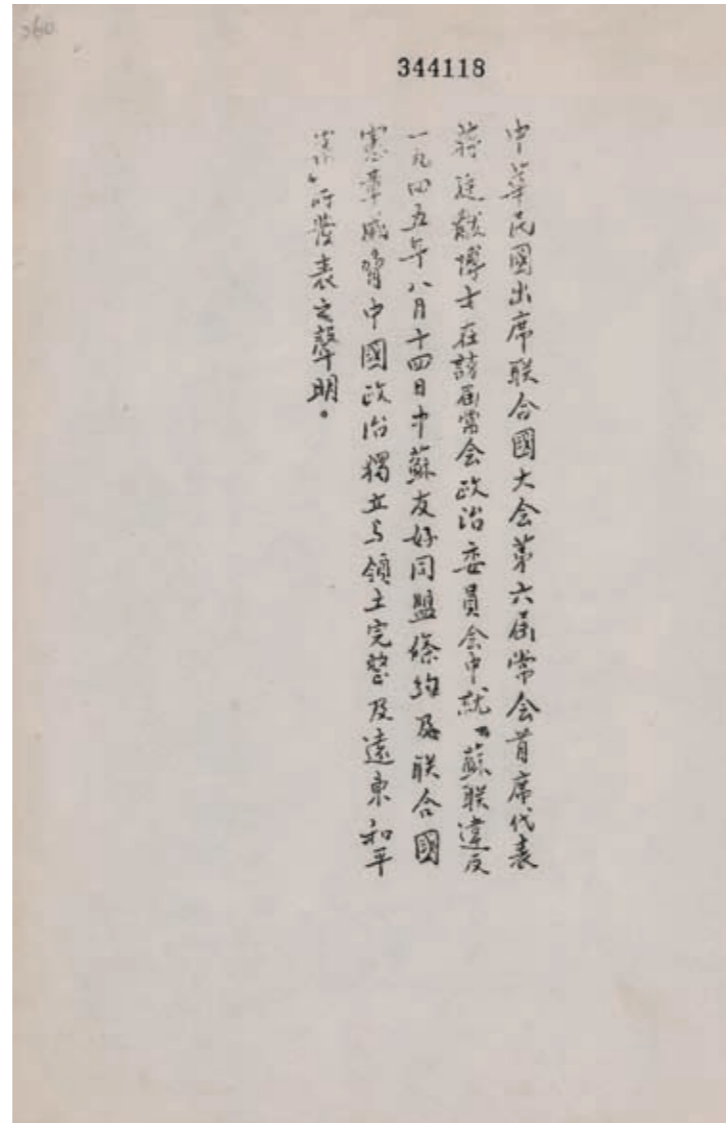 360
344118
中華民國出席联合國大会第六届常会首席代表
蔣廷黻博士在該届常会政治委員会中就「蘇联違反
一九四五年八月十四日中蘇友好同盟條約及联合國
憲章威脅中國政治獨立与領土完整及遠東和平
案」所發表之聲明。